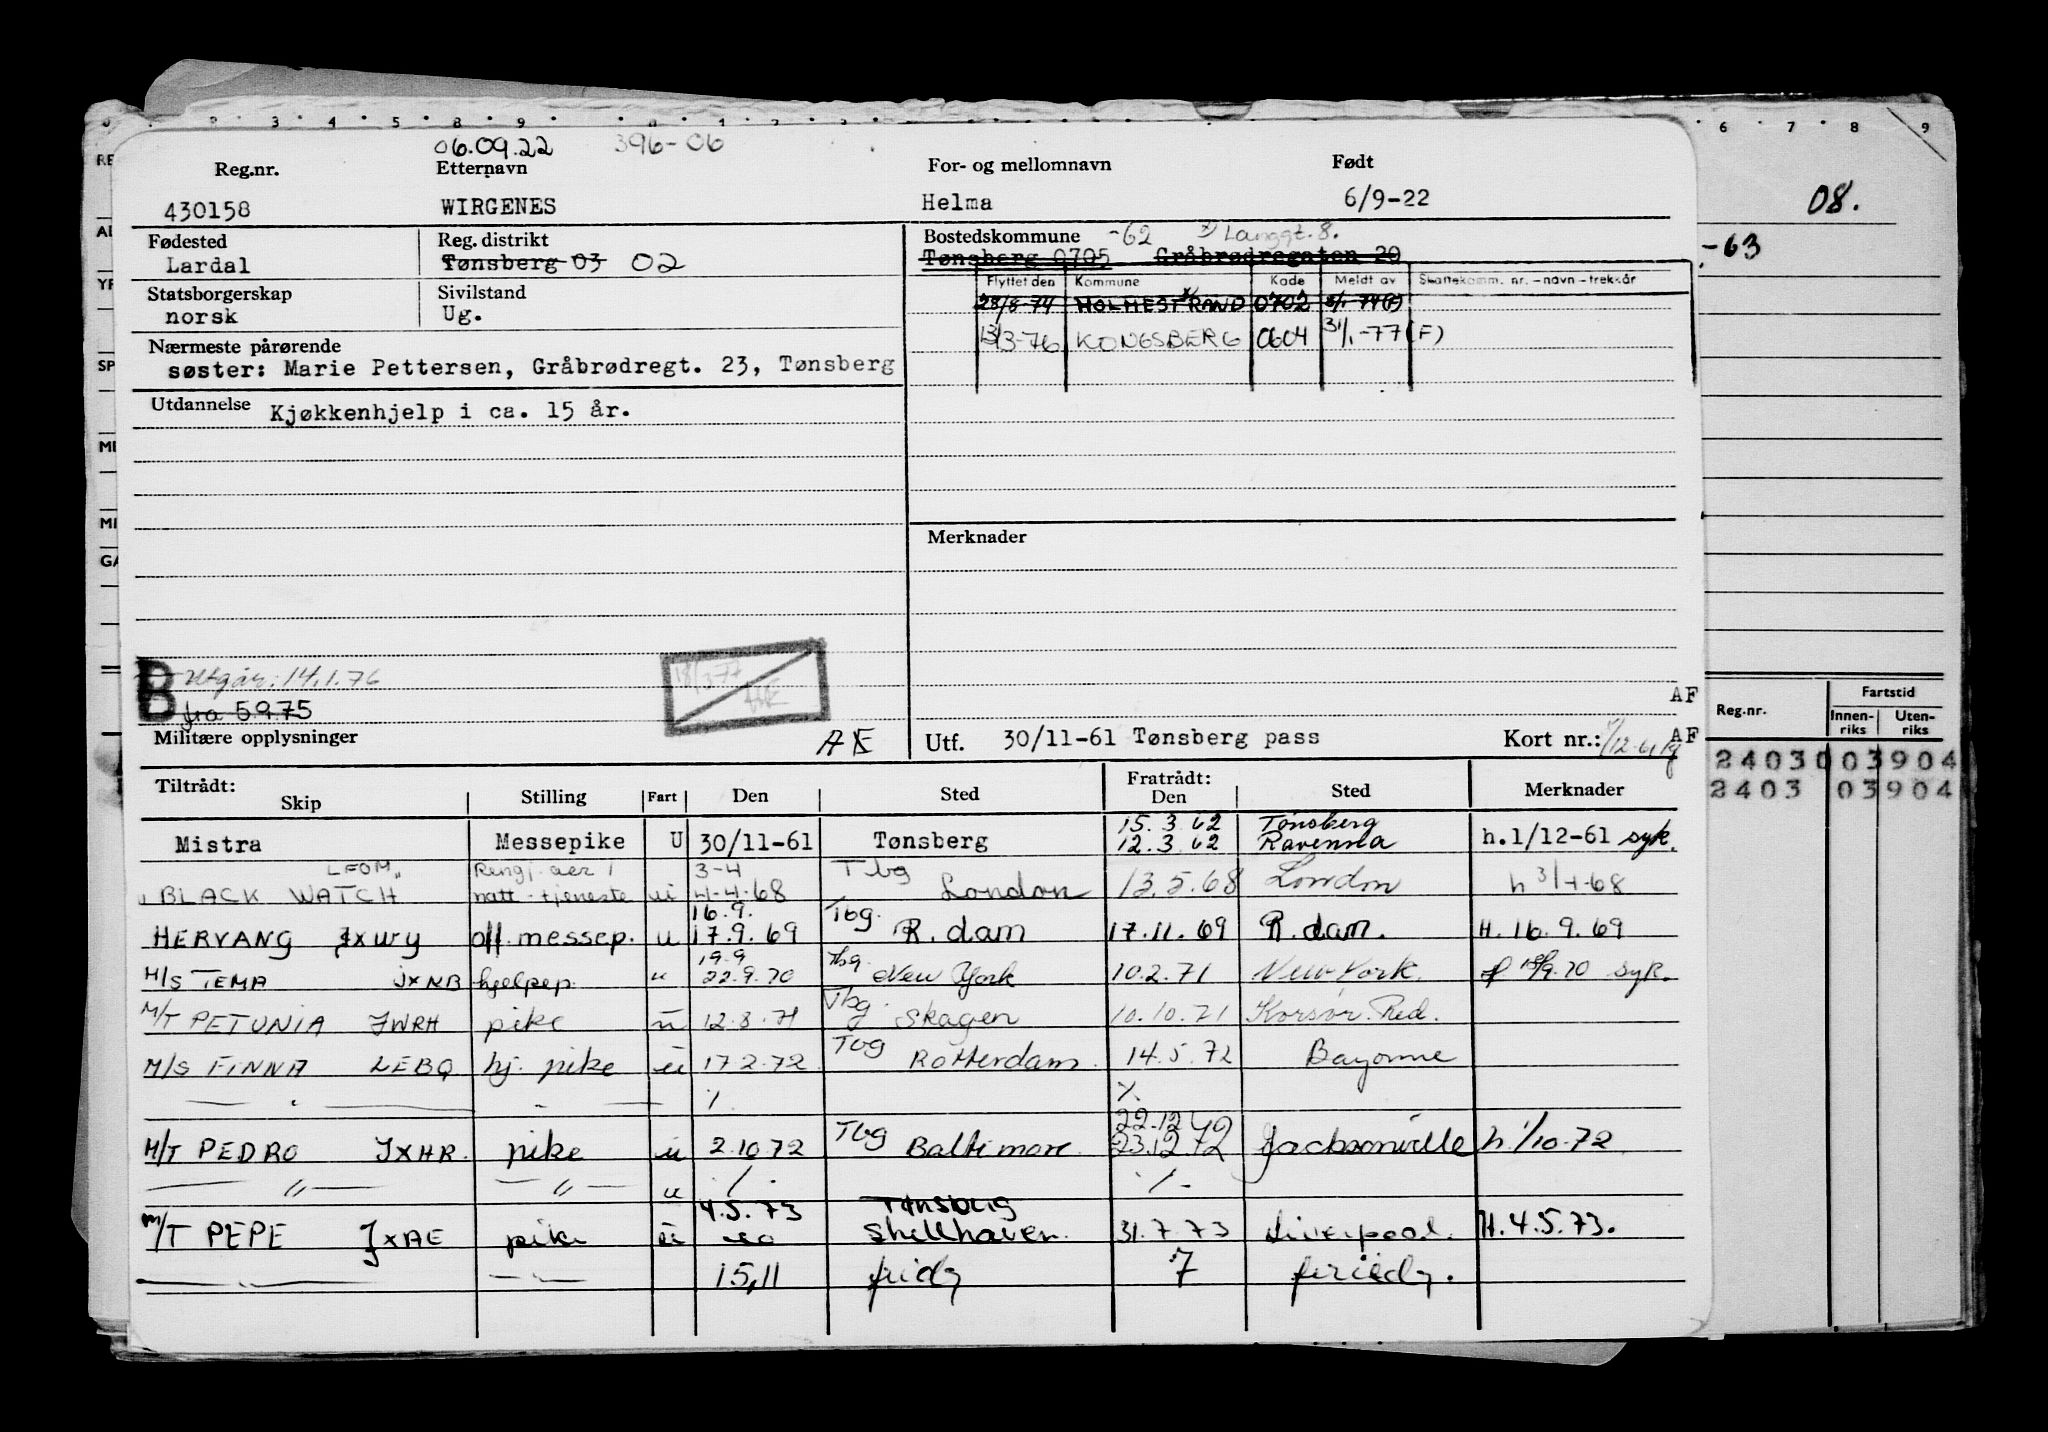 06.09.22 396-06
Reg.nr. Etternavn For- og mellomnavn Født
430158 WIRGENES Helma 6/9-22
Fødested Reg. distrikt Bostedskommune -62 x) Langgt. 8.
Lardal Tønsberg 03 02 Tønsberg 0705 Gråbrødregaten 20
Flyttet den Kommune Kode Meldt av Skattekomm. nr. - navn - trekkår
Statsborgerskap Sivilstand 28/8-74 HOLMESTRAND x) 0702
norsk Ug. 13/3-76 KONGSBERG 0604 31/1-77 (F)
Nærmeste pårørende
søster: Marie Pettersen, Gråbrødregt. 23, Tønsberg
Utdannelse Kjøkkenhjelp i ca. 15 år.
Merknader
B Utgår: 14.1.76
fra 5.9.75
18/3-77
AF
Militære opplysninger AE Utf. 30/11-61 Tønsberg pass Kort nr.: AF
Tiltrådt: Fratrådt:
Skip Stilling Fart Den Sted Den Sted Merknader
15.3.62 Tønsberg
Mistra Messepike U 30/11-61 Tønsberg 12.3.62 Ravenna h.1/12-61 syk.
LFOM 3-4 Tbg
BLACK WATCH natt-tjeneste u 4-4-68 London 13.5.68 London
16.9. Tbg.
HERVANG JXWY off. messep. u 17.9.69 R.dam 17.11.69 R.dam. H. 16.9.69
19.9 Tbg
M/S TEMA JXNB hjelpep. u 22.9.70 New York 10.2.71 New York. syk.
Tbg.
M/T PETUNIA JWRH pike u 12.8.71 Skagen 10.10.71 Korsør. Red.
Tbg
M/S FINNA LEBQ hj. pike u 17.2.72 Rotterdam. 14.5.72 Bayonne
— " — — " — ./. ./.
Tbg 22.12.72
M/T PEDRO JXHR. pike u 2.10.72 Baltimore. 23.12.72 Jacksonville h. 1/10-72
— " — — " — u ./. ./.
4.5.73 Tønsberg
M/T PEPE JXAE pike u Shellhaven. 31.7.73 Liverpool. H. 4.5.73.
— " — — " — 15,11 fridg 7 feriedg.
2 3 4 5 8 9
6 7 8 9
08.
-63
RE
YR
SP
GA
Fartstid
Reg.nr. Innen-riks Uten-riks
24030 03904
2403 03904